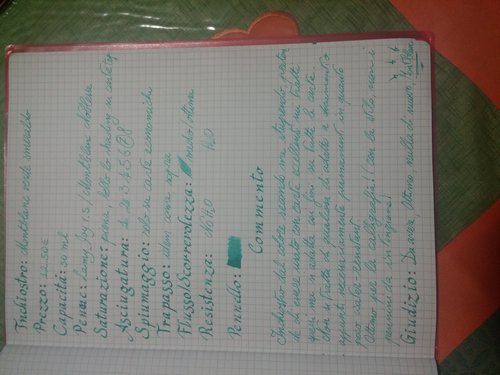 Inchiostro: Montblanc verde smeraldo
Prezzo: 12.50€
Capacità: 50 ml
Penne: Lamy Joy 1.5 / Montblanc Noblesse
Saturazione: piena, bello lo shading su carte top
Asciugatura: 1 2 3 4 5 6 7 8
Spiumaggio: solo su carte economiche
Trapasso: idem come sopra
Flusso/Scorrevolezza: medio/ottima
Resistenza: No H2O H2O
Pennello:
Commento
Inchiostro del colore secondo me stupendo,
di essere usato con carte eccellenti su tratti
ma si adatta ai fini su tutte le carte
Non si tratta di qualcosa di adatto a documenti o
appunti necessariamente permanenti in quanto
poco water-resistant.
Ottimo per la calligrafia! (con la stilo, non i
pennini da intinzione)
Giudizio: Da avere. Ottimo, nulla di nuovo, Montblanc